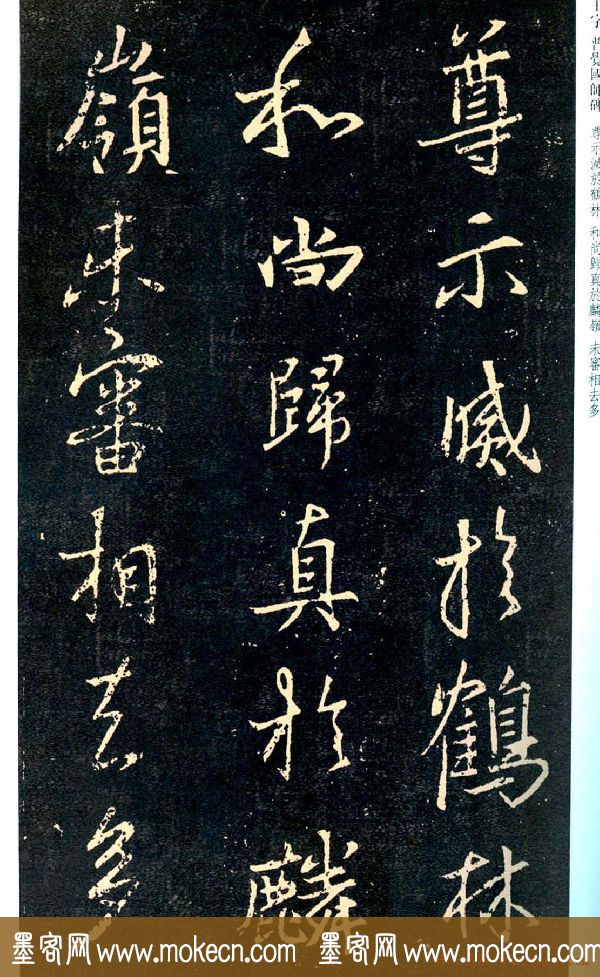 尊示滅於鶴林
和尚歸真於麟
嶺未審相去多
普覺國師碑 尊示滅於鶴林 和尚歸真於麟嶺 未審相去多
墨客网 www.mokecn.com 墨客网 www.mokecn.com